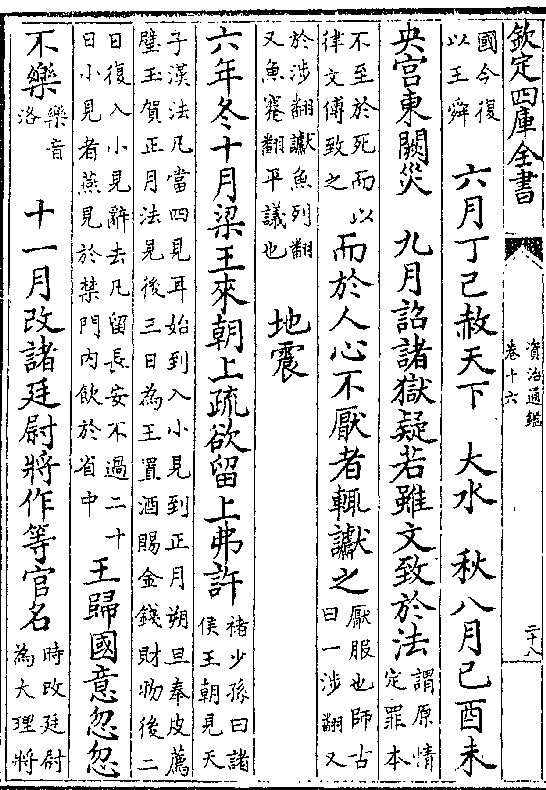 欽定四庫全書
資治通鑑
卷十六
二十八
國今復
以王舜
六月丁巳赦天下 大水 秋八月己酉未
央宮東闕災 九月詔諸獄疑若雖文致於法
謂原情
定罪本
不至於死而以
律文傅致之
而於人心不厭者輒讞之
厭服也師古
曰一涉翻又
於涉翻讞魚列翻
又魚蹇翻平議也
地震
六年冬十月梁王來朝上疏欲留上弗許
褚少孫曰諸
侯王朝見天
子漢法凡當四見耳始到入小見到正月朔旦奉皮薦
璧玉賀正月法見後三日為王置酒賜金錢財物後二
日復入小見辭去凡留長安不過二十
日小見者燕見於禁門內飲於省中
王歸國意忽忽
不樂
樂音
洛
十一月改諸廷尉將作等官名
時改廷尉
為大理將